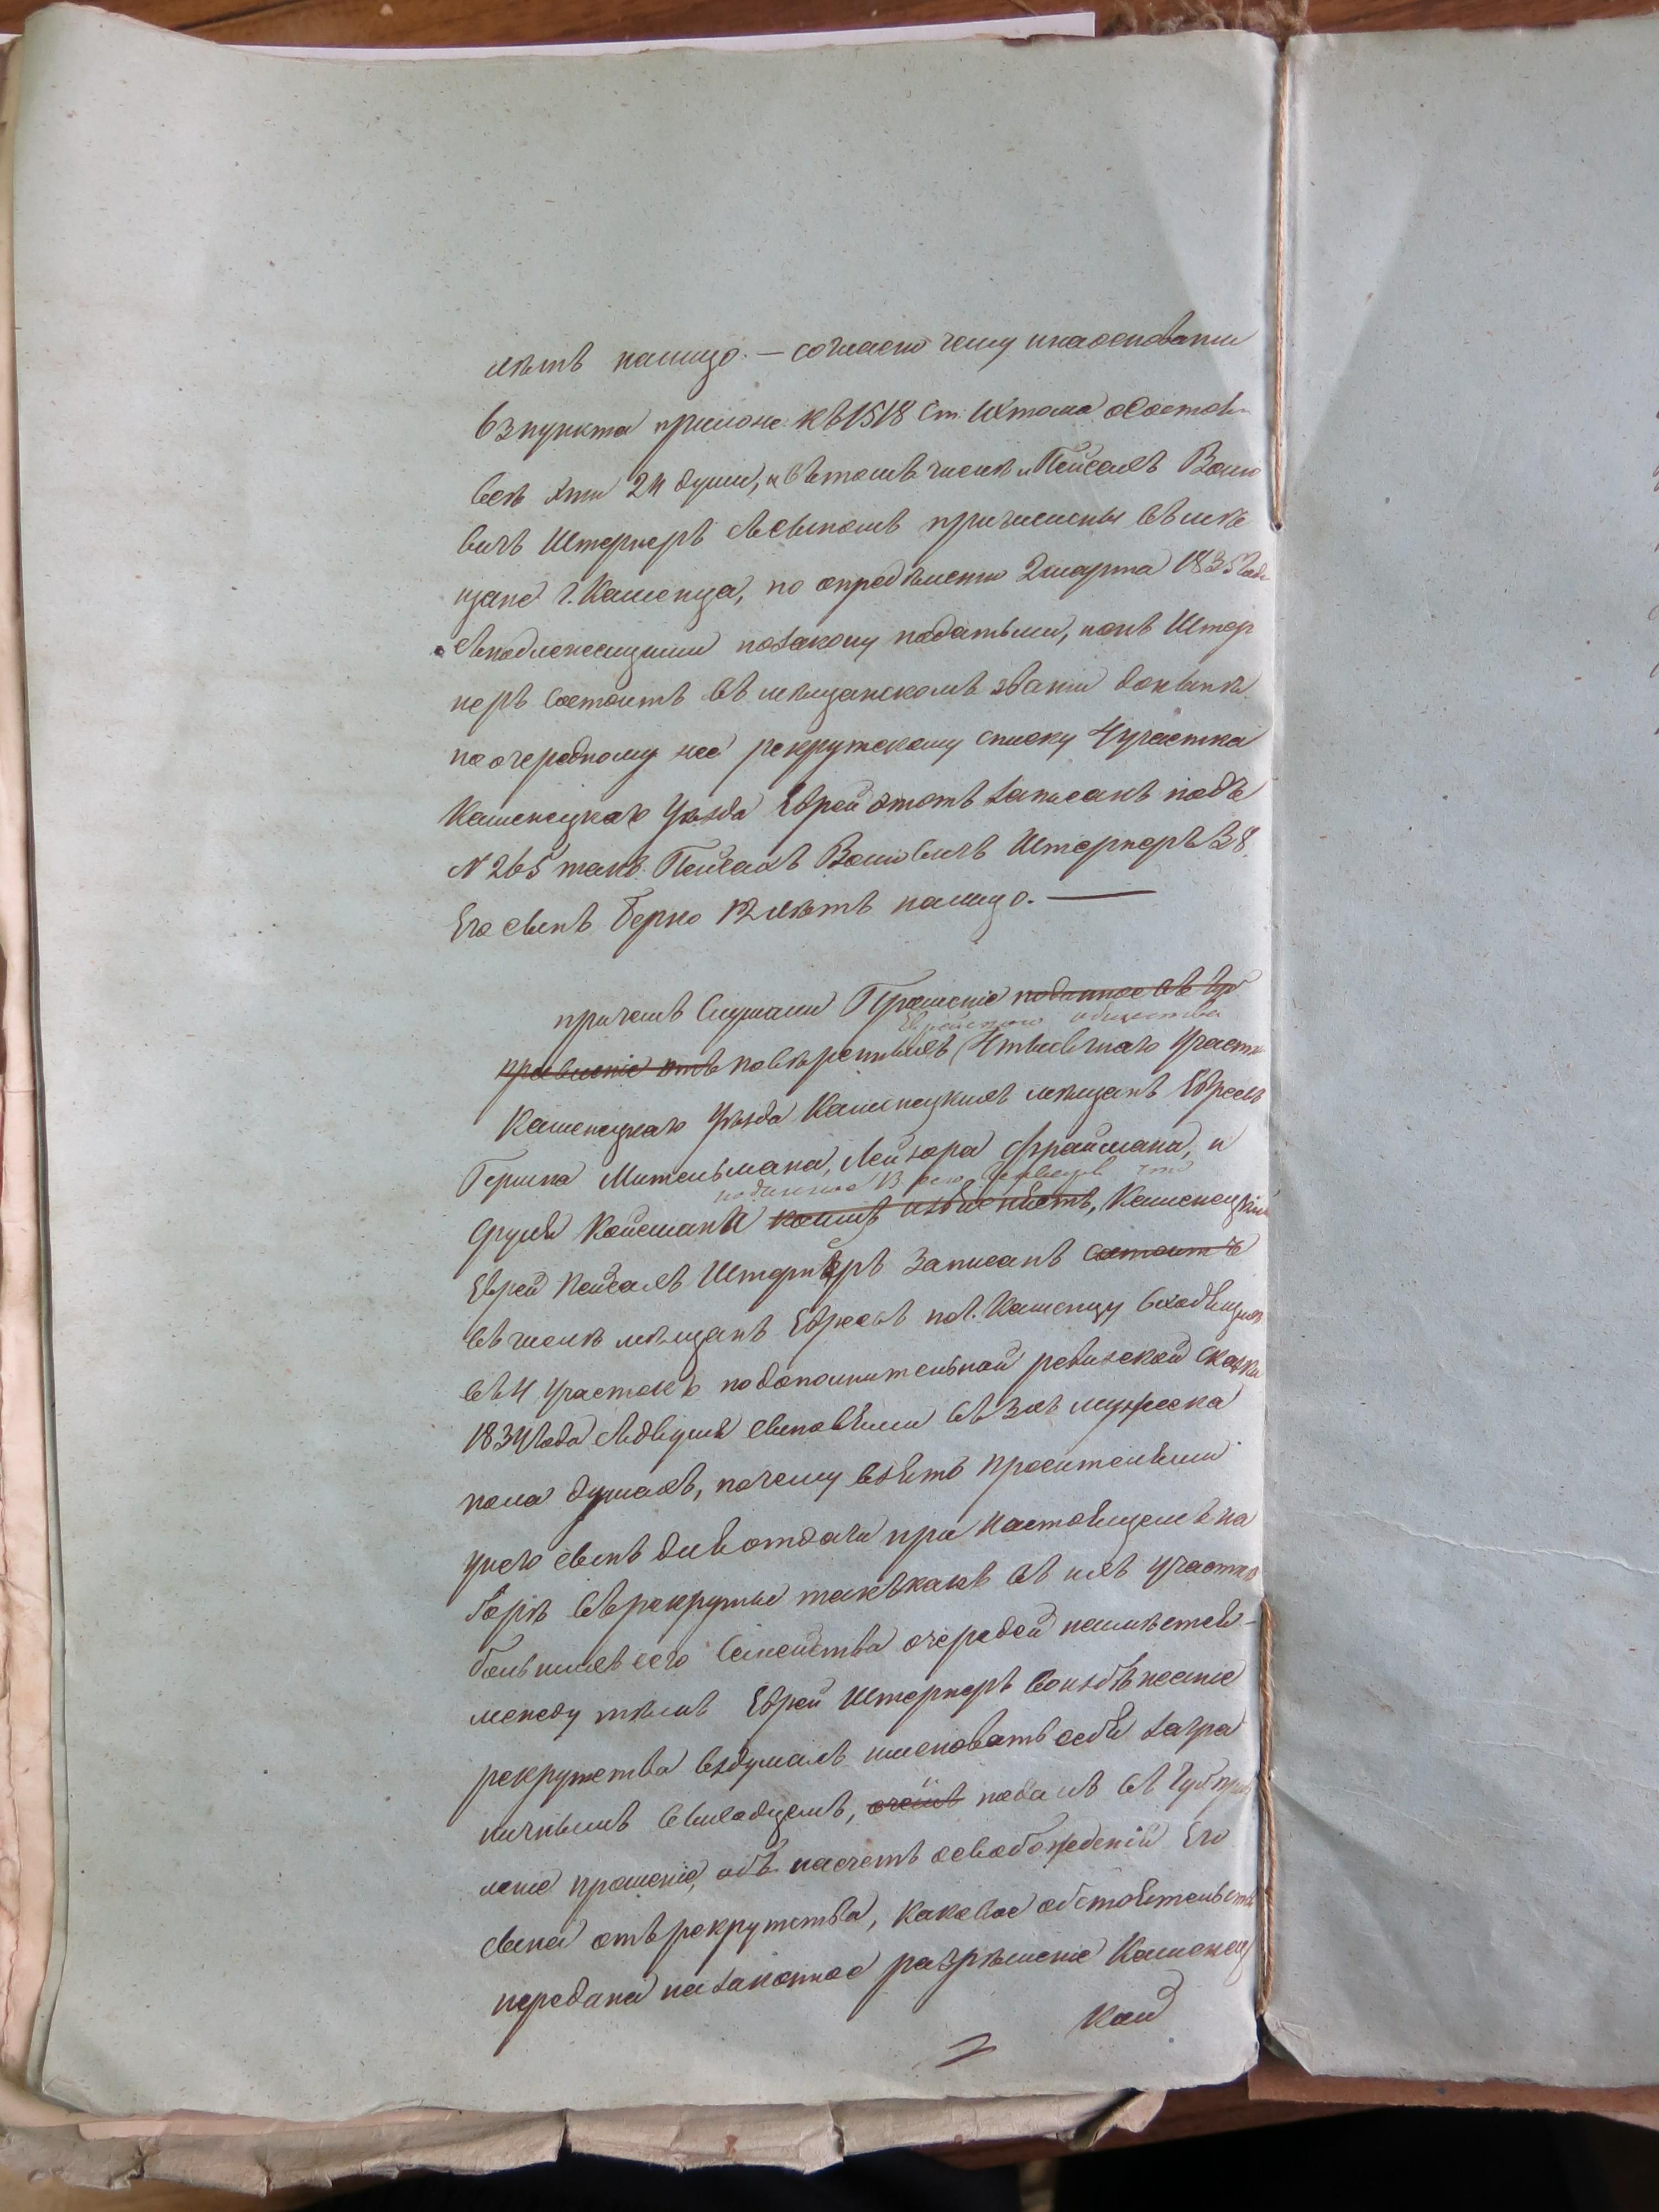 лѣтъ налицо. — согласно чему и на основаніи
63 пункта прилож: къ 1518 ст. IX тома о Состоян:
всѣ эти 24 души, и въ томъ числѣ и Пейсахъ Волко
вичъ Штернеръ съ сыномъ причислены въ мѣ
щане г. Каменца, по опредѣленію 2 марта 1835 года
съ надлежащими по закону податьми, нонѣ Штер
неръ состоитъ въ мѣщанскомъ званіи донынѣ.
по очередному же рекрутскому списку 4 участка
Каменецкаго уѣзда Еврей этотъ записанъ подъ
№ 265 такъ: Пейсахъ Волковичъ Штернеръ 38.
Его сынъ Берко 12 лѣтъ налицо. —
при чемъ Слушали Прошеніе поданное въ Губ
правленіе отъ повѣренныхъ Еврейского общества 4 тысячнаго Участк
Каменецкаго Уѣзда Каменецкихъ мѣщанъ Евреевъ
Гершка Мительмана, Лейзора Фраймана, и
Сруля Койсмана, Каменецкій
Еврей Пейсахъ Штернеръ Записанъ состоитъ
въ числѣ мѣщанъ Евреевъ по г. Каменцу входящихъ
въ 4 участокъ по дополнительной ревизской сказки
1834 года съ двумя сыновьями въ 3хъ мужеска
пола душахъ, почему взятъ просительми
у него сынъ для отдачи при настоящемъ на
борѣ въ рекруты такъ какъ въ ихъ участкѣ
большихъ его семейства очередей неимѣется —
между тѣмъ Еврей Штернеръ во избѣжаніе
рекрутства вздумалъ именовать себя загра
ничнымъ выходцемъ, о чемъ подалъ въ Губ прав
леніе прошеніе, объ насчетъ освобожденій Его
сына отъ рекрутства, каковое обстоятельство
передана на законное разрѣшеніе Каменец
кой